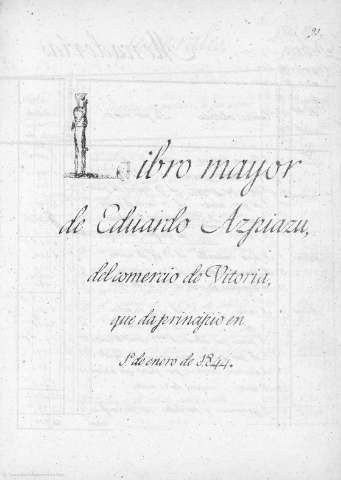 91
Libro mayor
de Eduardo Azpiazu,
del comercio de Vitoria,
que da principio en
1º de enero de 1844.